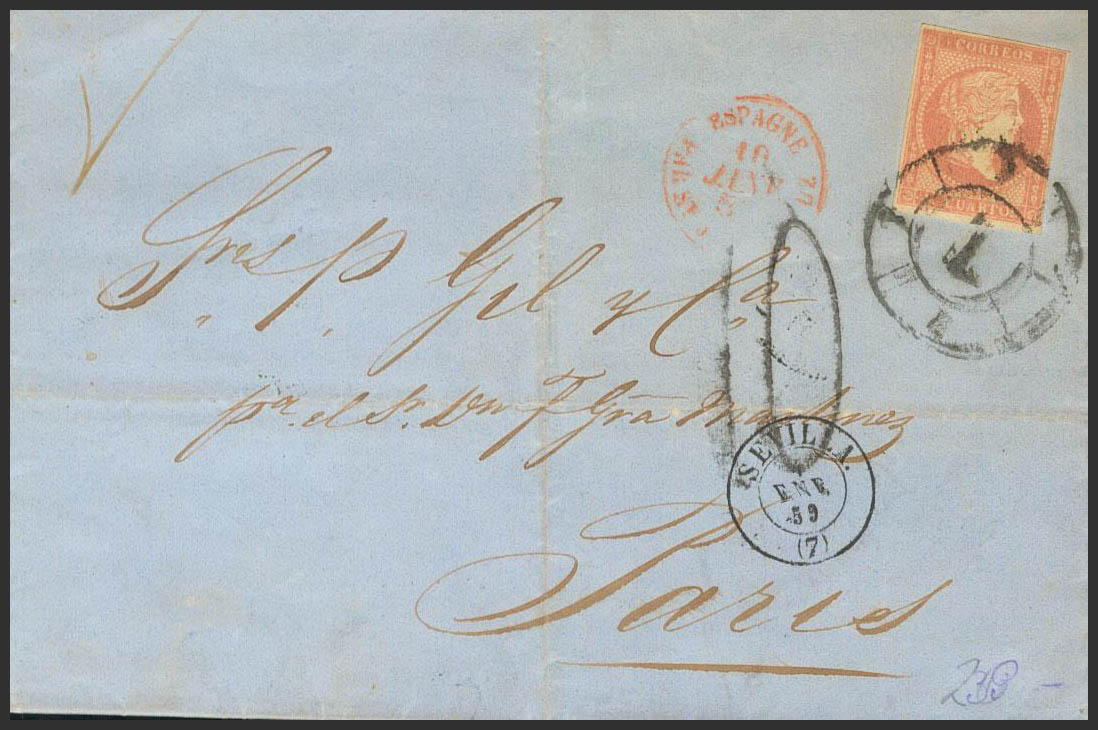 CORREOS
CUARTOS
ESPAGNE
10
JANV
Sres P. Gil y Cª
pª el Sr. Dn F Gra Martinez
SEVILLA.
ENE
59
(7)
Paris
239 -